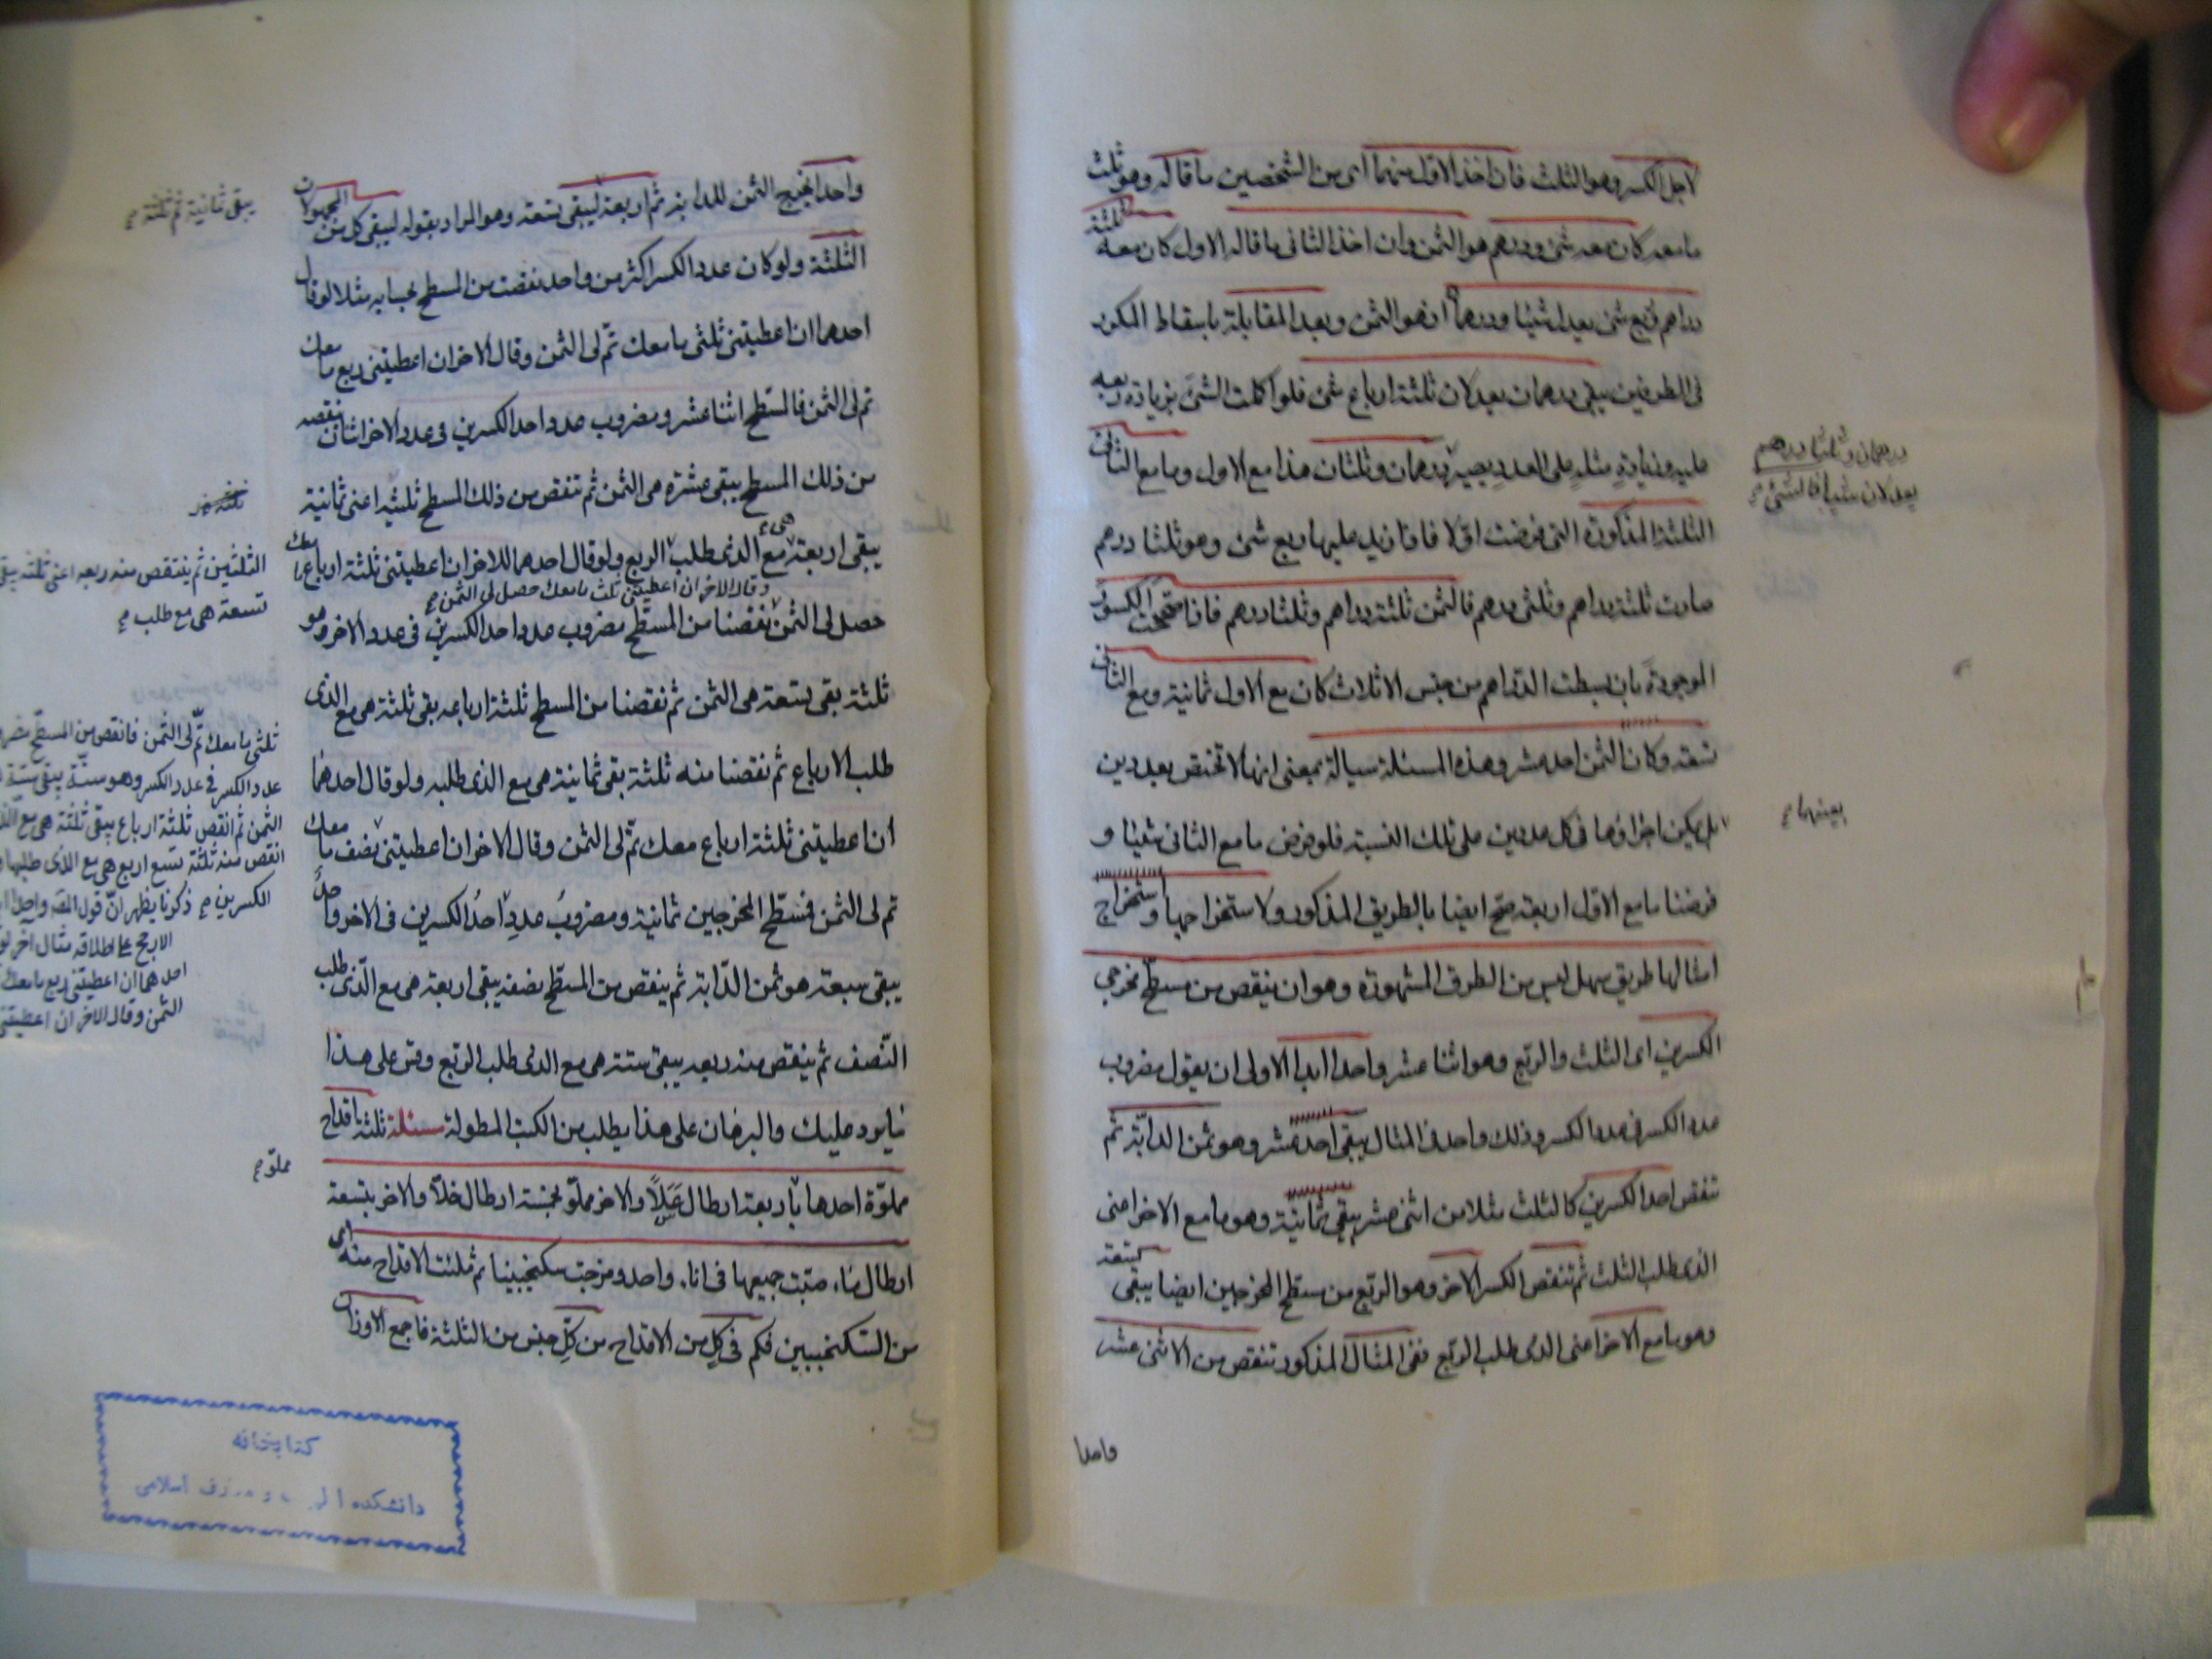 لاجل الكسر وهو الثلث فان اخذ الاول منهما اى من الشخصين ما قاله وهو ثلث
ما معه كان معه شئ ودرهم هو الثمن وان اخذ الثانى ما قاله الاول كان معه ثلثة
دراهم وربع شئ يعدل شيئا ودرهما اذ هو الثمن وبعد المقابلة باسقاط المكرر
فى الطرفين يبقى درهمان يعدلان ثلثة ارباع شئ فلو اكملت الشئ بزيادة ربعه
عليه وزيادة مثله على العدد يصير درهمان وثلثان هذا مع الاول وما مع الثانى
درهمان وثلثا درهم
يعدلان شيئا فالشئ
الثلثة المذكورة التى فرضت اولا فاذا زيد عليها ربع شئ وهو ثلثا درهم
صارت ثلثة دراهم وثلثى درهم فالثمن ثلثة دراهم وثلثا درهم فاذا صححت الكسور
الموجودة بان بسطت الدراهم من جنس الاثلاث كان مع الاول ثمانية ومع الثانى
تسعة وكان الثمن احد عشر وهذه المسئلة سيالة بمعنى انها لا تختص بعددين
بعينهما
بل يمكن اجراؤها فى كل عددين على تلك النسبة فلو فرض ما مع الثانى شيئا و
فرضنا ما مع الاول اربعة صح ايضا بالطريق المذكور ولاستخراجها واستخراج
امثالها طريق سهل ليس من الطرق المشهورة وهو ان ينقص من مسطح مخرجى
الكسرين اى الثلث والربع وهو اثنا عشر واحد ابدا الاولى ان يقول مضروب
عدد الكسر فى عدد الكسر وذلك واحد فى المثال يبقى احد عشر وهو ثمن الدابة ثم
تنقص احد الكسرين كالثلث مثلا من اثنى عشر يبقى ثمانية وهو ما مع الاخر اعنى
الذى طلب الثلث ثم تنقص الكسر الاخر وهو الربع من مسطح المخرجين ايضا يبقى تسعة
وهو ما مع الاخر اعنى الذى طلب الربع ففى المثال المذكور تنقص من الاثنى عشر
واحدا
واحدا ليخرج الثمن للدابة ثم اربعة ليبقى تسعة وهو المراد بقوله ليبقى كل من المجهولات
يبقى ثمانية ثم ثلثة
الثلثة ولو كان عدد الكسر اكثر من واحد نقصت من المسطح بحسابه مثلا لو قال
احدهما ان اعطيتنى ثلثى ما معك تم لى الثمن وقال الاخر ان اعطيتنى ربع ما معك
تم لى الثمن فالمسطح اثنا عشر ومضروب عدد احد الكسرين فى عدد الاخر اثنان تنقصه
من ذلك المسطح يبقى عشرة هى الثمن ثم تنقص من ذلك المسطح ثلثيه اعنى ثمانية
يبقى اربعة هى مع الذى طلب الربع ولو قال احدهما للاخر ان اعطيتنى ثلثة ارباع ما معك
الثلثين ثم ينتقص منه ربعه اعنى ثلثة يبقى
تسعة هى مع طلب
وقال الاخر ان اعطيتنى ثلث ما معك حصل لى الثمن
حصل لى الثمن نقصنا من المسطح مضروب عدد احد الكسرين فى عدد الاخر وهو
ثلثة بقى تسعة هى الثمن ثم نقصنا من المسطح ثلثة ارباعه بقى ثلثة هى مع الذى
طلب الارباع ثم نقصنا منه ثلثه بقى ثمانية هى مع الذى طلبه ولو قال احدهما
ان اعطيتنى ثلثة ارباع معك تم لى الثمن وقال الاخر ان اعطيتنى نصف ما معك
ثلثى ما معك تم لى الثمن فانقص من المسطح
عدد الكسر فى عدد الكسر وهو ستة يبقى ستة
الثمن ثم انقص ثلثة ارباع يبقى ثلثة هى مع
انقص منه ثلثة تسع اربع هى مع الذى طلبها
الكسرين ذكرنا يظهر ان قول
الارجح على اطلاقه مثال اخر لو
احدهما ان اعطيتنى ربع ما معك
الثمن وقال الاخر ان اعطيتنى
تم لى الثمن فمسطح المخرجين ثمانية ومضروب عدد احد الكسرين فى الاخر واحد
يبقى سبعة هو ثمن الدابة ثم ينقص من المسطح نصفه يبقى اربعة هى مع الذى طلب
النصف ثم ينقص منه ربعه يبقى ستة هى مع الذى طلب الربع وقس على هذا
ما يرد عليك والبرهان على هذا يطلب من الكتب المطولة مسئلة ثلثة اقداح
مملوة احدها باربعة ارطال عسلا والاخر مملو بخمسة ارطال خلا والاخر بتسعة
مملو
ارطال ماء صبت جميعها فى اناء واحد ومزجت سكنجبينا ثم ملئت الاقداح منه اى
من السكنجبين فكم فى كل من الاقداح من كل جنس من الثلثة فاجمع الاوزان
كتابخانه
دانشكده معارف اسلامى